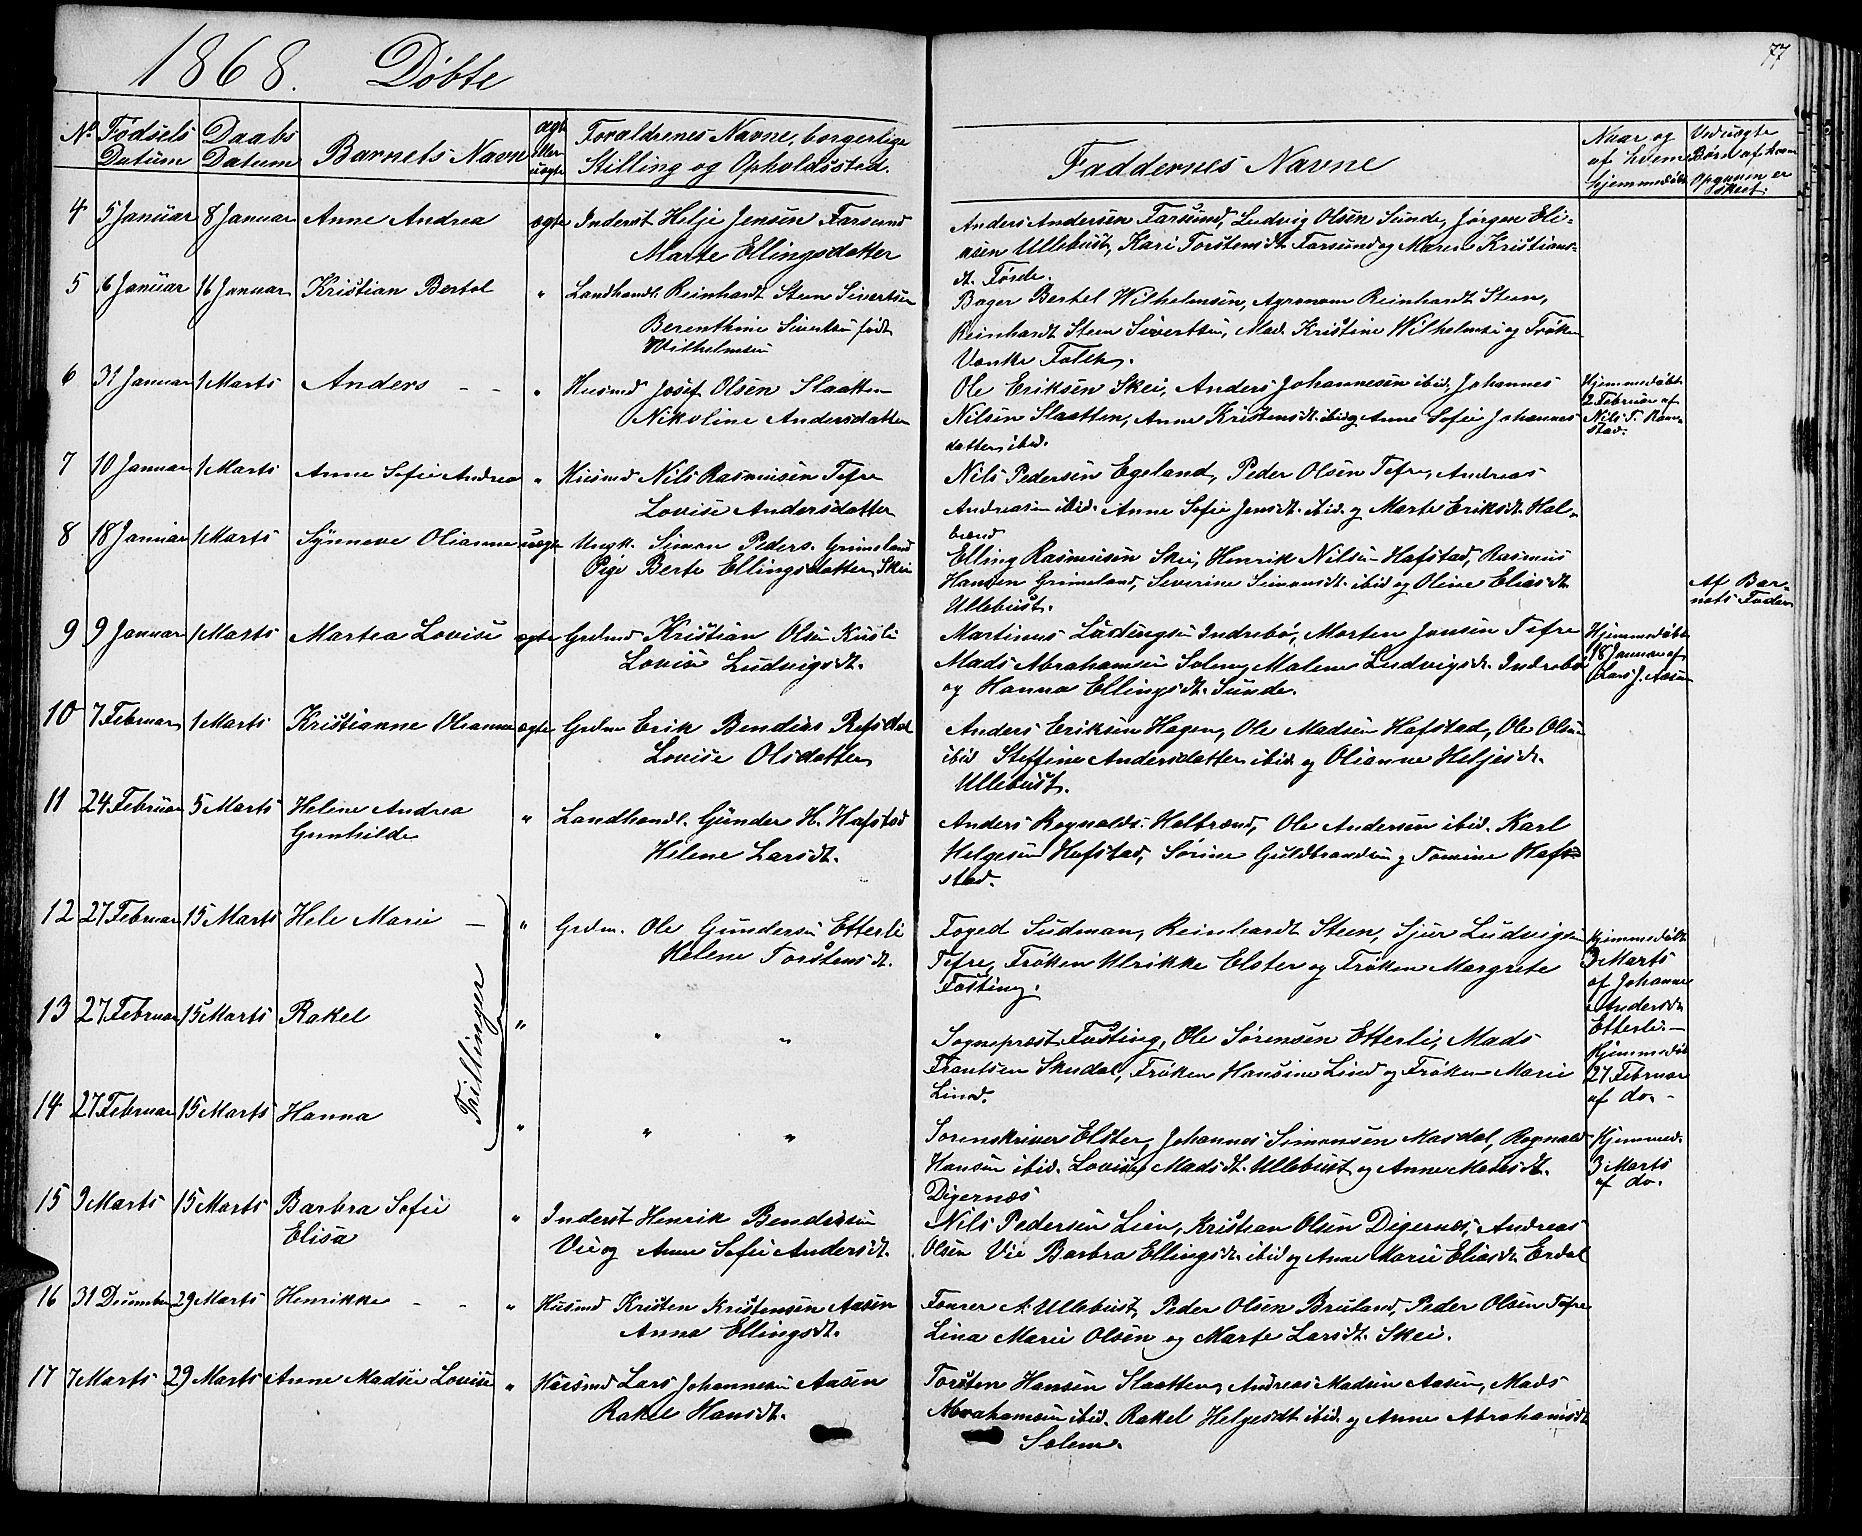 1868. Döbte
77
No Födsels Datum Daabs Datum Barnets Navn ægte eller uægte Forældrenes Navne, borgerlige Stilling og Opholdssted. Faddernes Navne Naar og af hvem hjemmedöbt Ved uægte Börn af hvem Opgaven er skeet.
4 5 Januar 8 Januar Anne Andrea ægte Inderst Helje Jensen Farsund
Marte Ellingsdatter
Anders Andersen Farsund, Ludvig Olsen Sunde, Jörgen Eli-
asen Ullebust, Kari Torstensdt. Farsund og Maren Kristians-
dt. Förde.
5 6 Januar 16 Januar Kristian Bertol " Landhandl. Reinhardt Steen Sivertsen
Berenthine Sivertsen födt
Wilhelmsen
Bager Bertel Wilhelmsen, Agronom Reinhardt Steen,
Reinhardt Steen Sivertsen, Mad. Kristine Wilhelmsen og Fröken
Venke Falch.
6 31 Januar 1 Marts Anders - - " Husmd Josef Olsen Slaatten
Nikoline Andersdatter
Ole Eriksen Skei, Anders Johannesen ibid, Johannes
Nilsen Slaatten, Anne Kristensdt. ibid og Anne Sofie Johannes-
datter ibid.
Hjemmedöbt
2 Februar af
Nils T. Ram-
stad.
7 10 Januar 1 Marts Anne Sofie Andrea " Husmd Nils Rasmusen Tefre
Lovise Andersdatter
Nils Pedersen Egeland, Peder Olsen Tefre, Andreas
Andreasen ibid. Anne Sofie Jensdt. ibid. og Marte Eriksdt. Hal-
brend
8 18 Januar 1 Marts Synneve Olianne uægte Ungk. Simon Peders. Grimeland
Pige Berte Ellingsdatter Skei
Elling Rasmusen Skei, Henrik Nilsen Hafstad, Rasmus
Hansen Grimeland, Severine Simonsdt. ibid og Oline Eliasdt.
Ullebust.
Af Bar-
nets Fader
9 9 Januar 1 Marts Martea Lovise ægte Grdmd Kristian Olsen Kusli
Lovise Ludvigsdt.
Martinus Ludvigsen Indrebö, Morten Jensen Tefre
Mads Abrahamsen Solem, Malene Ludvigsdt. Indrebö
og Hanna Ellingsdt. Sunde.
Hjemmedöbt
18 Januar af
Lars J. Aasen
10 7 Februar 1 Marts Kristianne Olianne ægte Grdm Erik Bendiks Refsdal
Lovise Olsdatter
Anders Eriksen Hagen, Ole Madsen Hafstad, Ole Olsen
ibid Steffine Andersdatter ibid og Olianne Heljesdt.
Ullebust.
11 24 Februar 5 Marts Helene Andrea
Gunhilde
" Landhandl. Gunder H. Hafstad
Helene Larsdt.
Anders Regnalds. Halbrend, Ole Andersen ibid. Karl
Helgesen Hafstad, Sörine Guldbrandsen og Tomine Haf-
stad.
12 27 Februar 15 Marts Hele Marie - " Grdm. Ole Gundersen Etterli
Helene Torstensdt.
Foged Sudman, Reinhardt Steen, Sjur Ludvigsen
Tefre, Fröken Ulrikke Elster og Fröken Margrete
Fasting.
Hjemmedöbt
3 Marts
af Johanne
Andersdt.
Etterli. -
Trillinger
13 27 Februar 15 Marts Rakel " " "
Sognepræst Fasting, Ole Sörensen Etterli, Mads
Frantsen Skudal, Fröken Hansine Lind og Fröken Marie
Lind.
Hjemmedöbt
27 Februar
af do. -
14 27 Februar 15 Marts Hanna " " "
Sorenskriver Elster, Johannes Simonsen Masdal, Regnald
Hansen ibid. Lovise Madsdt. Ullebust og Anne Madsdt.
Digernæs
Hjemmed.
3 Marts
af do.
15 9 Marts 15 Marts Barbra Sofie
Elisa
" Inderst Henrik Bendiksen
Vie og Anne Sofie Andersdt.
Nils Pedersen Lien, Kristian Olsen Digernes, Andreas
Olsen Vie Barbra Ellingsdt. ibid og Anne Marie Eliasdt. Erdal
16 31 December 29 Marts Henrikke - - " Husmd Kristen Kristensen Aasen
Anna Ellingsdt.
Fourer A. Ullebust, Peder Olsen Bruland, Peder Olsen Tefre
Lina Marie Olsen og Marte Larsdt. Skei.
17 7 Marts 29 Marts Anne Madsie Lovise " Husmd Lars Johannesen Aasen
Rakel Hansdt.
Torsten Hansen Slaatten, Andreas Madsen Aasen, Mads
Abrahamsen ibid. Rakel Helgesdt ibid. og Anne Abrahamsdt
Solem.